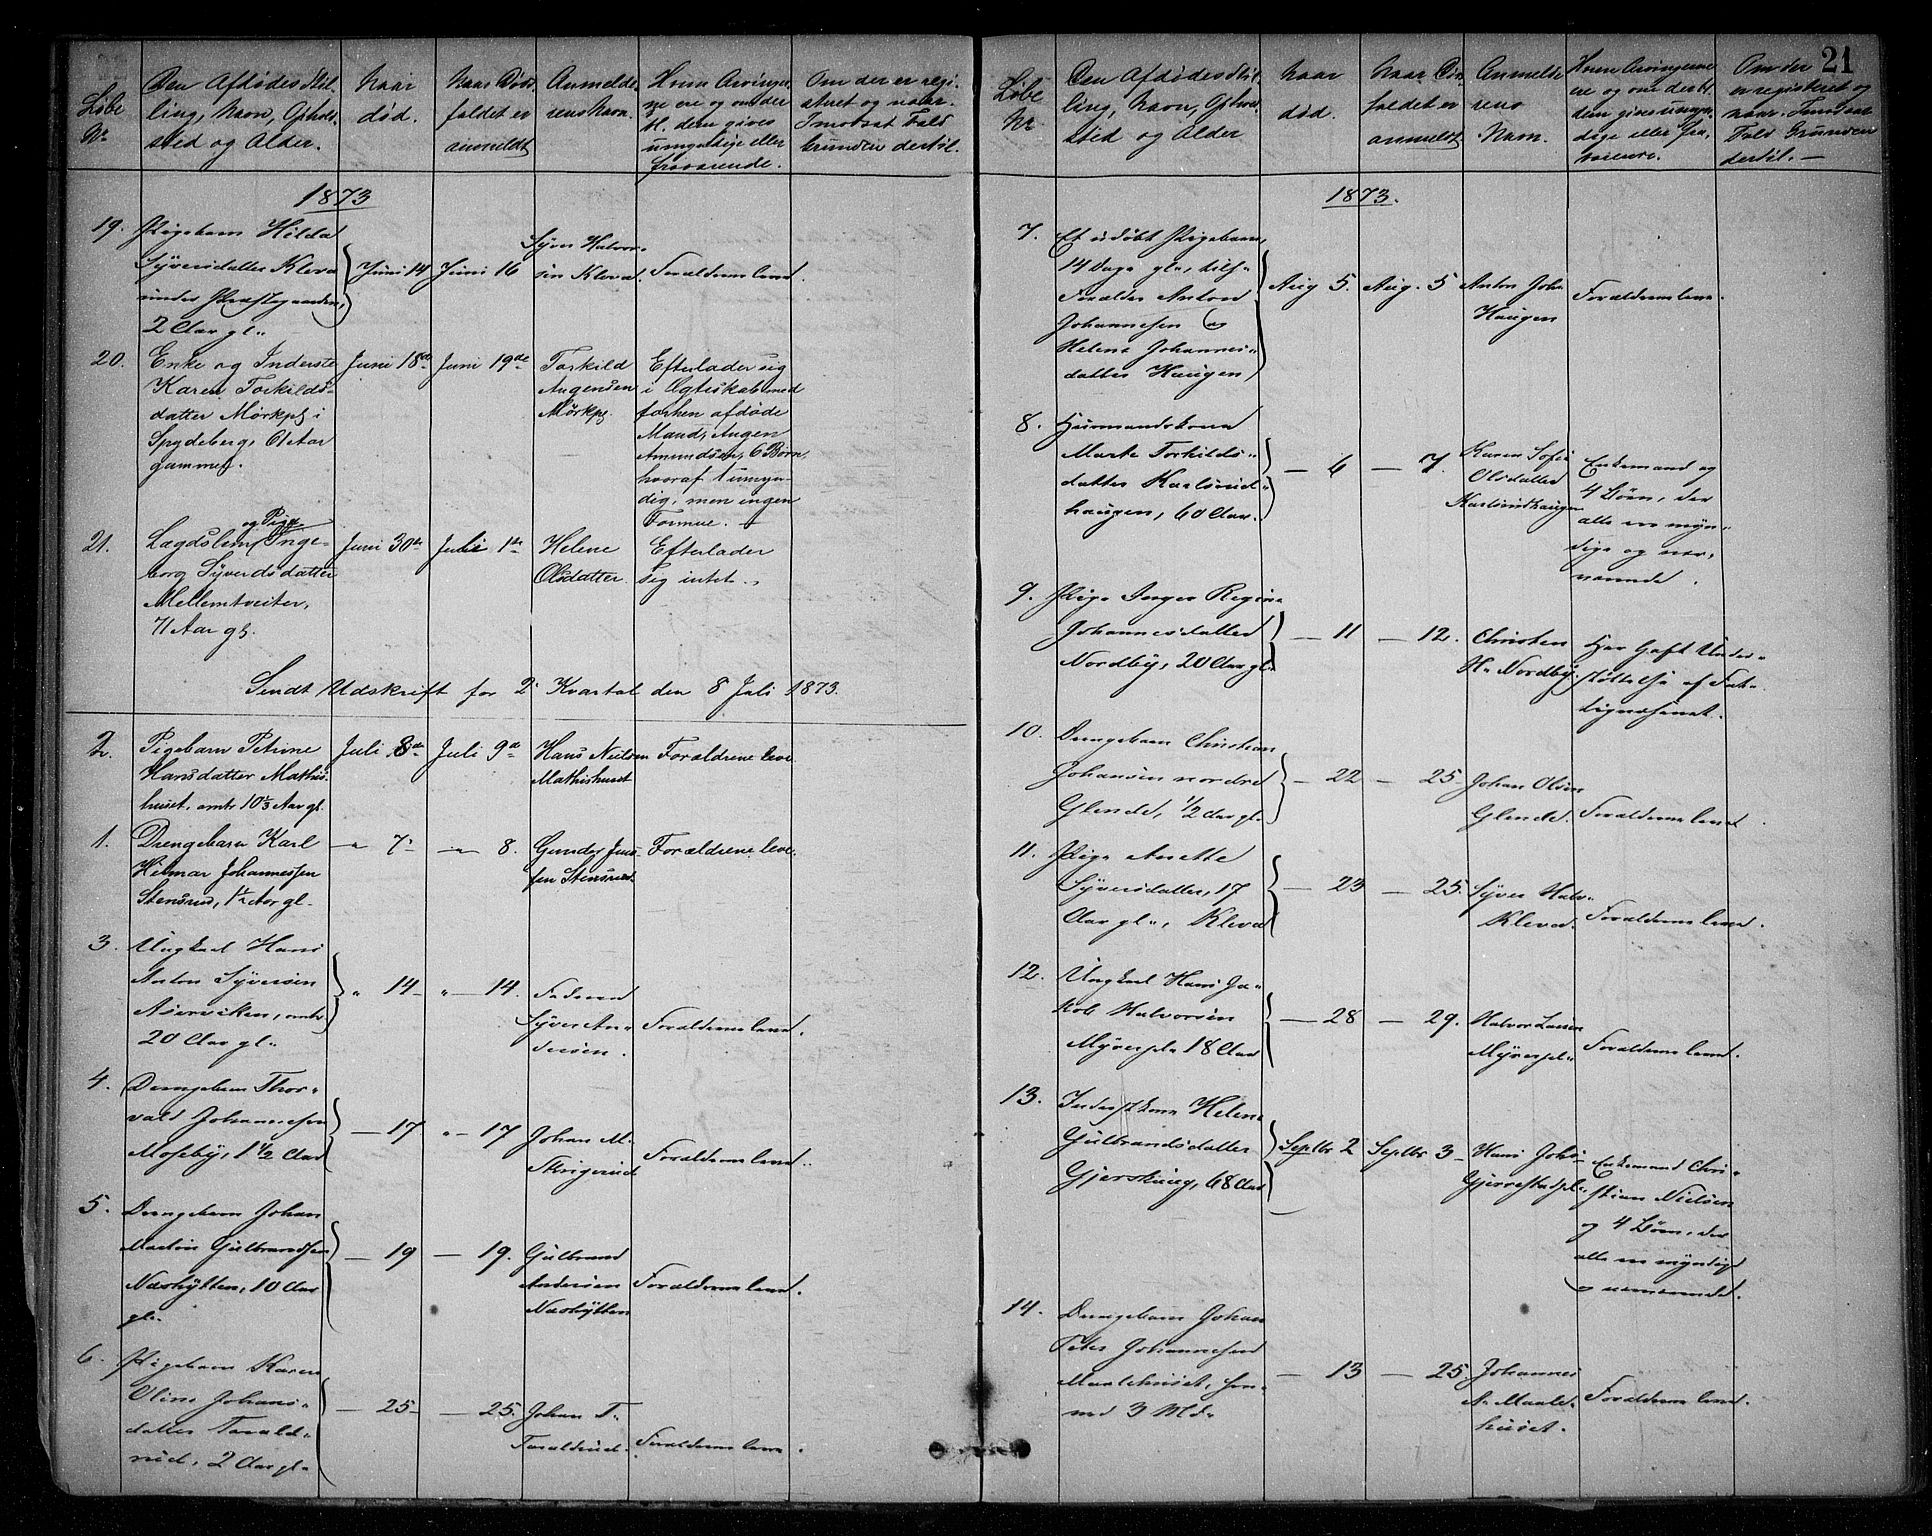 Løbe
Nr
Den Afdødes Stil-
ling, Navn, Opholds
sted og Alder.
Naar
død.
Naar Døds
faldet er
anmeldt
Anmelde
rens Navn.
Hvem Arvinger
ne ere og om der
bl. dem gives
umyndige eller
fraværende.
Om der er regi-
streret og naar.
I modsat Fald
Grunden dertil.
1873
19. Pigebarn Hilda
Syversdatter Kleva
under Præstegaarden,
2 Aar gl.
Juni 14
Juni 16
Syver Halvor-
sen Kleva.
Forældrene leve.
20. Enke og Inderste
Karen Torkilds-
datter Mørkpl i
Spydeberg, 61 Aar
gammel.
Juni 18de
Juni 19de
Torkild
Augensen
Mørkpl.
Efterlader sig
i Ægteskab med
forhen afdøde
Mand, Augen
Amundsen, 6 Børn,
hvoraf 1 umyn-
dig, men ingen
Formue.
21. Lægdslem og Pige Inge-
borg Syverdsdatter
Mellemtveiter,
71 Aar gl.
Juni 30te
Juli 1te
Helene
Olsdatter.
Efterlader
sig intet.
Sendt Udskrift for 2 Kvartal den 8 Juli 1873.
2. Pigebarn Petrine
Hansdatter Mathis-
huset, omtr 10⅓ Aar gl.
Juli 8de
Juli 9de
Hans Nielsen
Mathishuset
Forældrene leve.
1. Drengebarn Karl
Hilmar Johannessen
Stensrud, 1½ Aar gl.
" 7
" 8.
Gunder Jens-
sen Stensrud.
Forældrene leve.
3. Ungkarl Hans
Anton Syversen
omtr
20 Aar gl.
" 14
" 14.
Faderen
Syver An-
dersen.
Forældrene leve.
4. Drengebarn Thor-
vald Johannesen
Moseby, 1½ Aar
— 17
" 17
Johan M.
Forældrene leve.
5. Drengebarn Johan
Martin Gulbrandsen
Næshytten, 10 Aar
gl.
— 19
— 19.
Gulbrand
Andersen
Næshytten
Forældrene leve.
6. Pigebarn Karen
Oline Johans-
datter Torald-
rud, 2 Aar gl.
— 25
— 25.
Johan T.
Toraldrud.
Forældrene leve.
21
Løbe
Nr
Den Afdødes Stil-
ling, Navn, Ophold
sted og Alder
Naar
død.
Naar Døds
faldet er
anmeldt
Anmelde
rens
Navn.
Hvem Arvingerne
ere og om der bl.
dem gives umyn-
dige eller fra-
værende.
Om der
er registreret og
naar. I modsat
Fald Grunden
dertil. —
1873.
7. Et udøbt Pigebarn,
14 Dage gl.,
Forældre Anton
Johannesen og
Helene Johannes-
datter Haugen
Aug 5.
Aug. 5
Anton Joh.
Haugen
Forældrene leve.
8. Husmandskone
Marte Torkilds-
datter Karlsrud-
haugen, 60 Aar.
— 6
— 7.
Karen Sofie
Olsdatter
Karlsrudhaugen
Enkemand og
4 Børn, der
alle ere myn-
dige og nær-
værende.
9. Pige Inger Regine
Johannesdatter
Nordby, 20 Aar gl.
— 11
— 12.
Christen
H. Nordby.
Har havt Under-
støttelse af Fat-
tigvæsenet.
10. Drengebarn Christian
Johansen nordre
Glende, 1/2 Aar gl.
— 22
— 25
Johan Olsen
Glende.
Forældrene leve.
11. Pige Anette
Syversdatter, 17
Aar gl., Kleva
— 23
— 25.
Syver Halv.
Kleva.
Forældrene leve.
12. Ungkarl Hans Ja-
kob Halvorsen
Myrerpl. 18 Aar
— 28
— 29.
Halvor Larsen
Myrerpl.
Forældrene leve.
13. Inderstkone Helene
Gulbrandsdatter
68 Aar
Septbr 2
Septbr 3
Hans Johs.
Enkemand Chri-
stian Nielsen
og 4 Børn, der
alle ere myndige
og nærværende.
14. Drengebarn Johan
Peter Johannesen
Maalehuset,
3 Md.
— 13
— 25.
Johannes
A. Maale-
huset.
Forældrene leve.